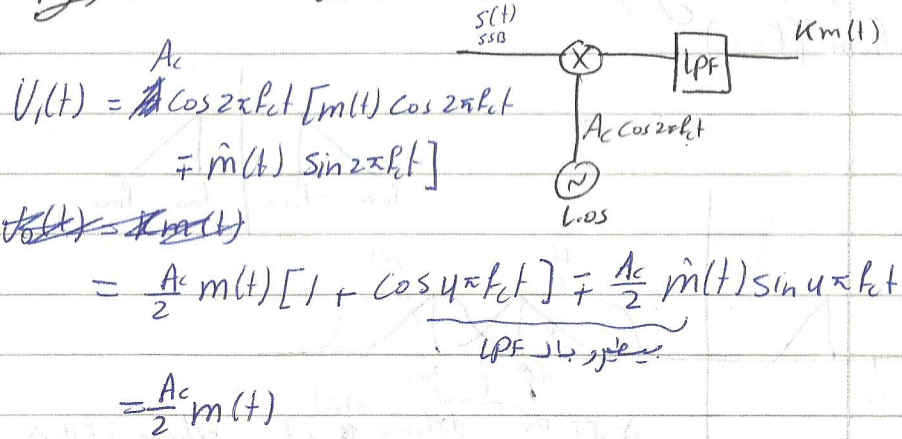 S(t)
SSB
Km(t)
LPF
A_c cos2πf_ct
L.os
A_c
V₁(t) = cos2πf_ct [m(t) cos2πf_ct
∓ m̂(t) sin2πf_ct]
= A_c/2 m(t) [1 + cos4πf_ct] ∓ A_c/2 m̂(t) sin4πf_ct
بال LPF
= A_c/2 m(t)